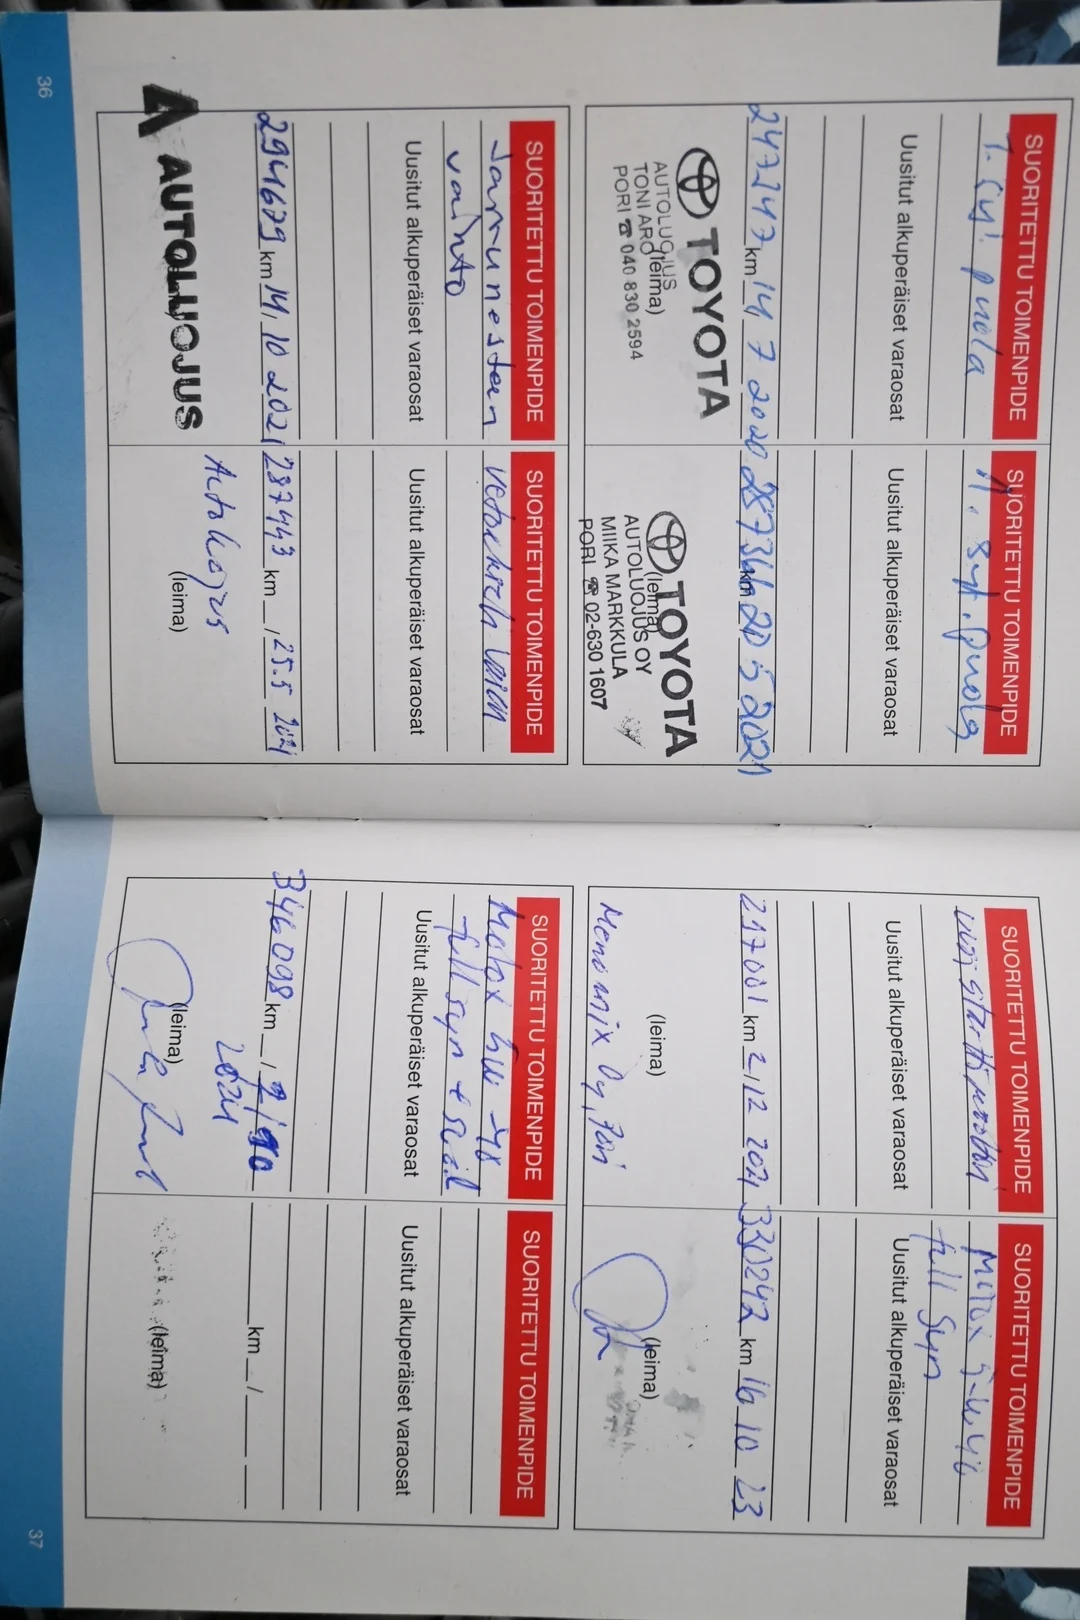 SUORITETTU TOIMENPIDE
1. syl. puola
Uusitut alkuperäiset varaosat
247247 km 14, 7 2020
TOYOTA
(leima)
AUTOLUOJUS
TONI ARO
PORI ☎ 040 830 2594
SUORITETTU TOIMENPIDE
11. syl. puola
Uusitut alkuperäiset varaosat
287344 km 20 5 2021
TOYOTA
(leima)
AUTOLUOJUS OY
MIIKA MARKKULA
PORI ☎ 02-630 1607
SUORITETTU TOIMENPIDE
Jarrunesteen
vaihto
Uusitut alkuperäiset varaosat
294679 km 14, 10 2021
A AUTOLUOJUS
SUORITETTU TOIMENPIDE
Uusitut alkuperäiset varaosat
287443 km _ / 25.5 2021
(leima)
36
SUORITETTU TOIMENPIDE
uusi starttimoottori
Uusitut alkuperäiset varaosat
217001 km 2 / 12 2021
(leima)
Menomix Oy, Pori
SUORITETTU TOIMENPIDE
Motox 5-W40
full Syn
Uusitut alkuperäiset varaosat
330242 km 16 10 23
(leima)
SUORITETTU TOIMENPIDE
Motox 5W-40
full syn + suod
Uusitut alkuperäiset varaosat
346098 km _ / 9/10
2024
(leima)
SUORITETTU TOIMENPIDE
Uusitut alkuperäiset varaosat
km _ / _ _
(leima)
37